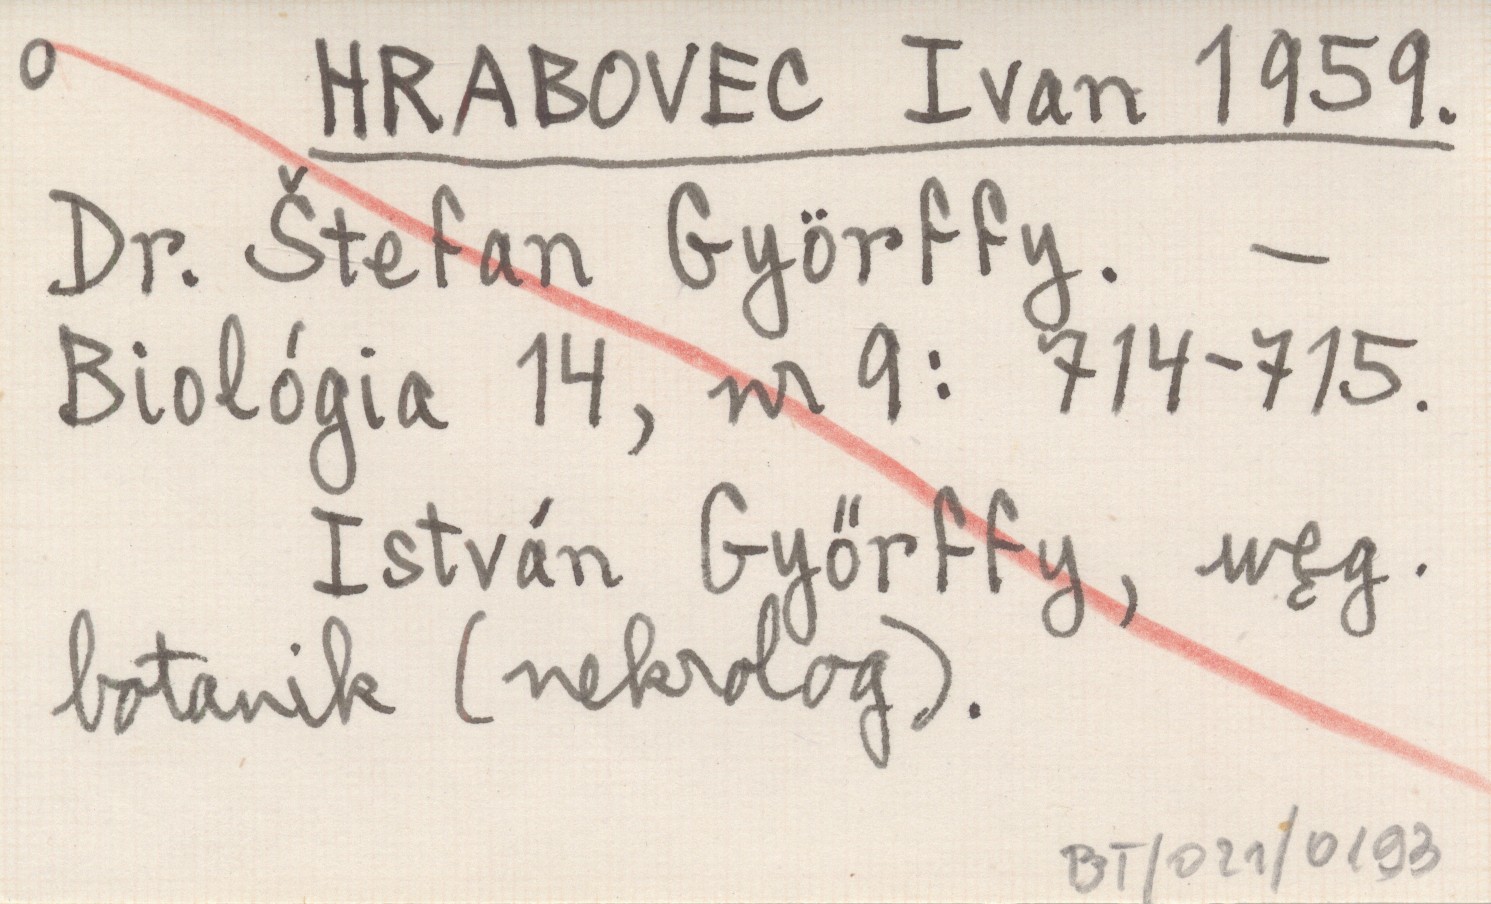 o HRABOVEC Ivan 1959.
Dr. Štefan Györffy. —
Biológia 14, nr 9: 714-715.
István Győrffy, węg.
botanik (nekrolog).
BT/021/0193